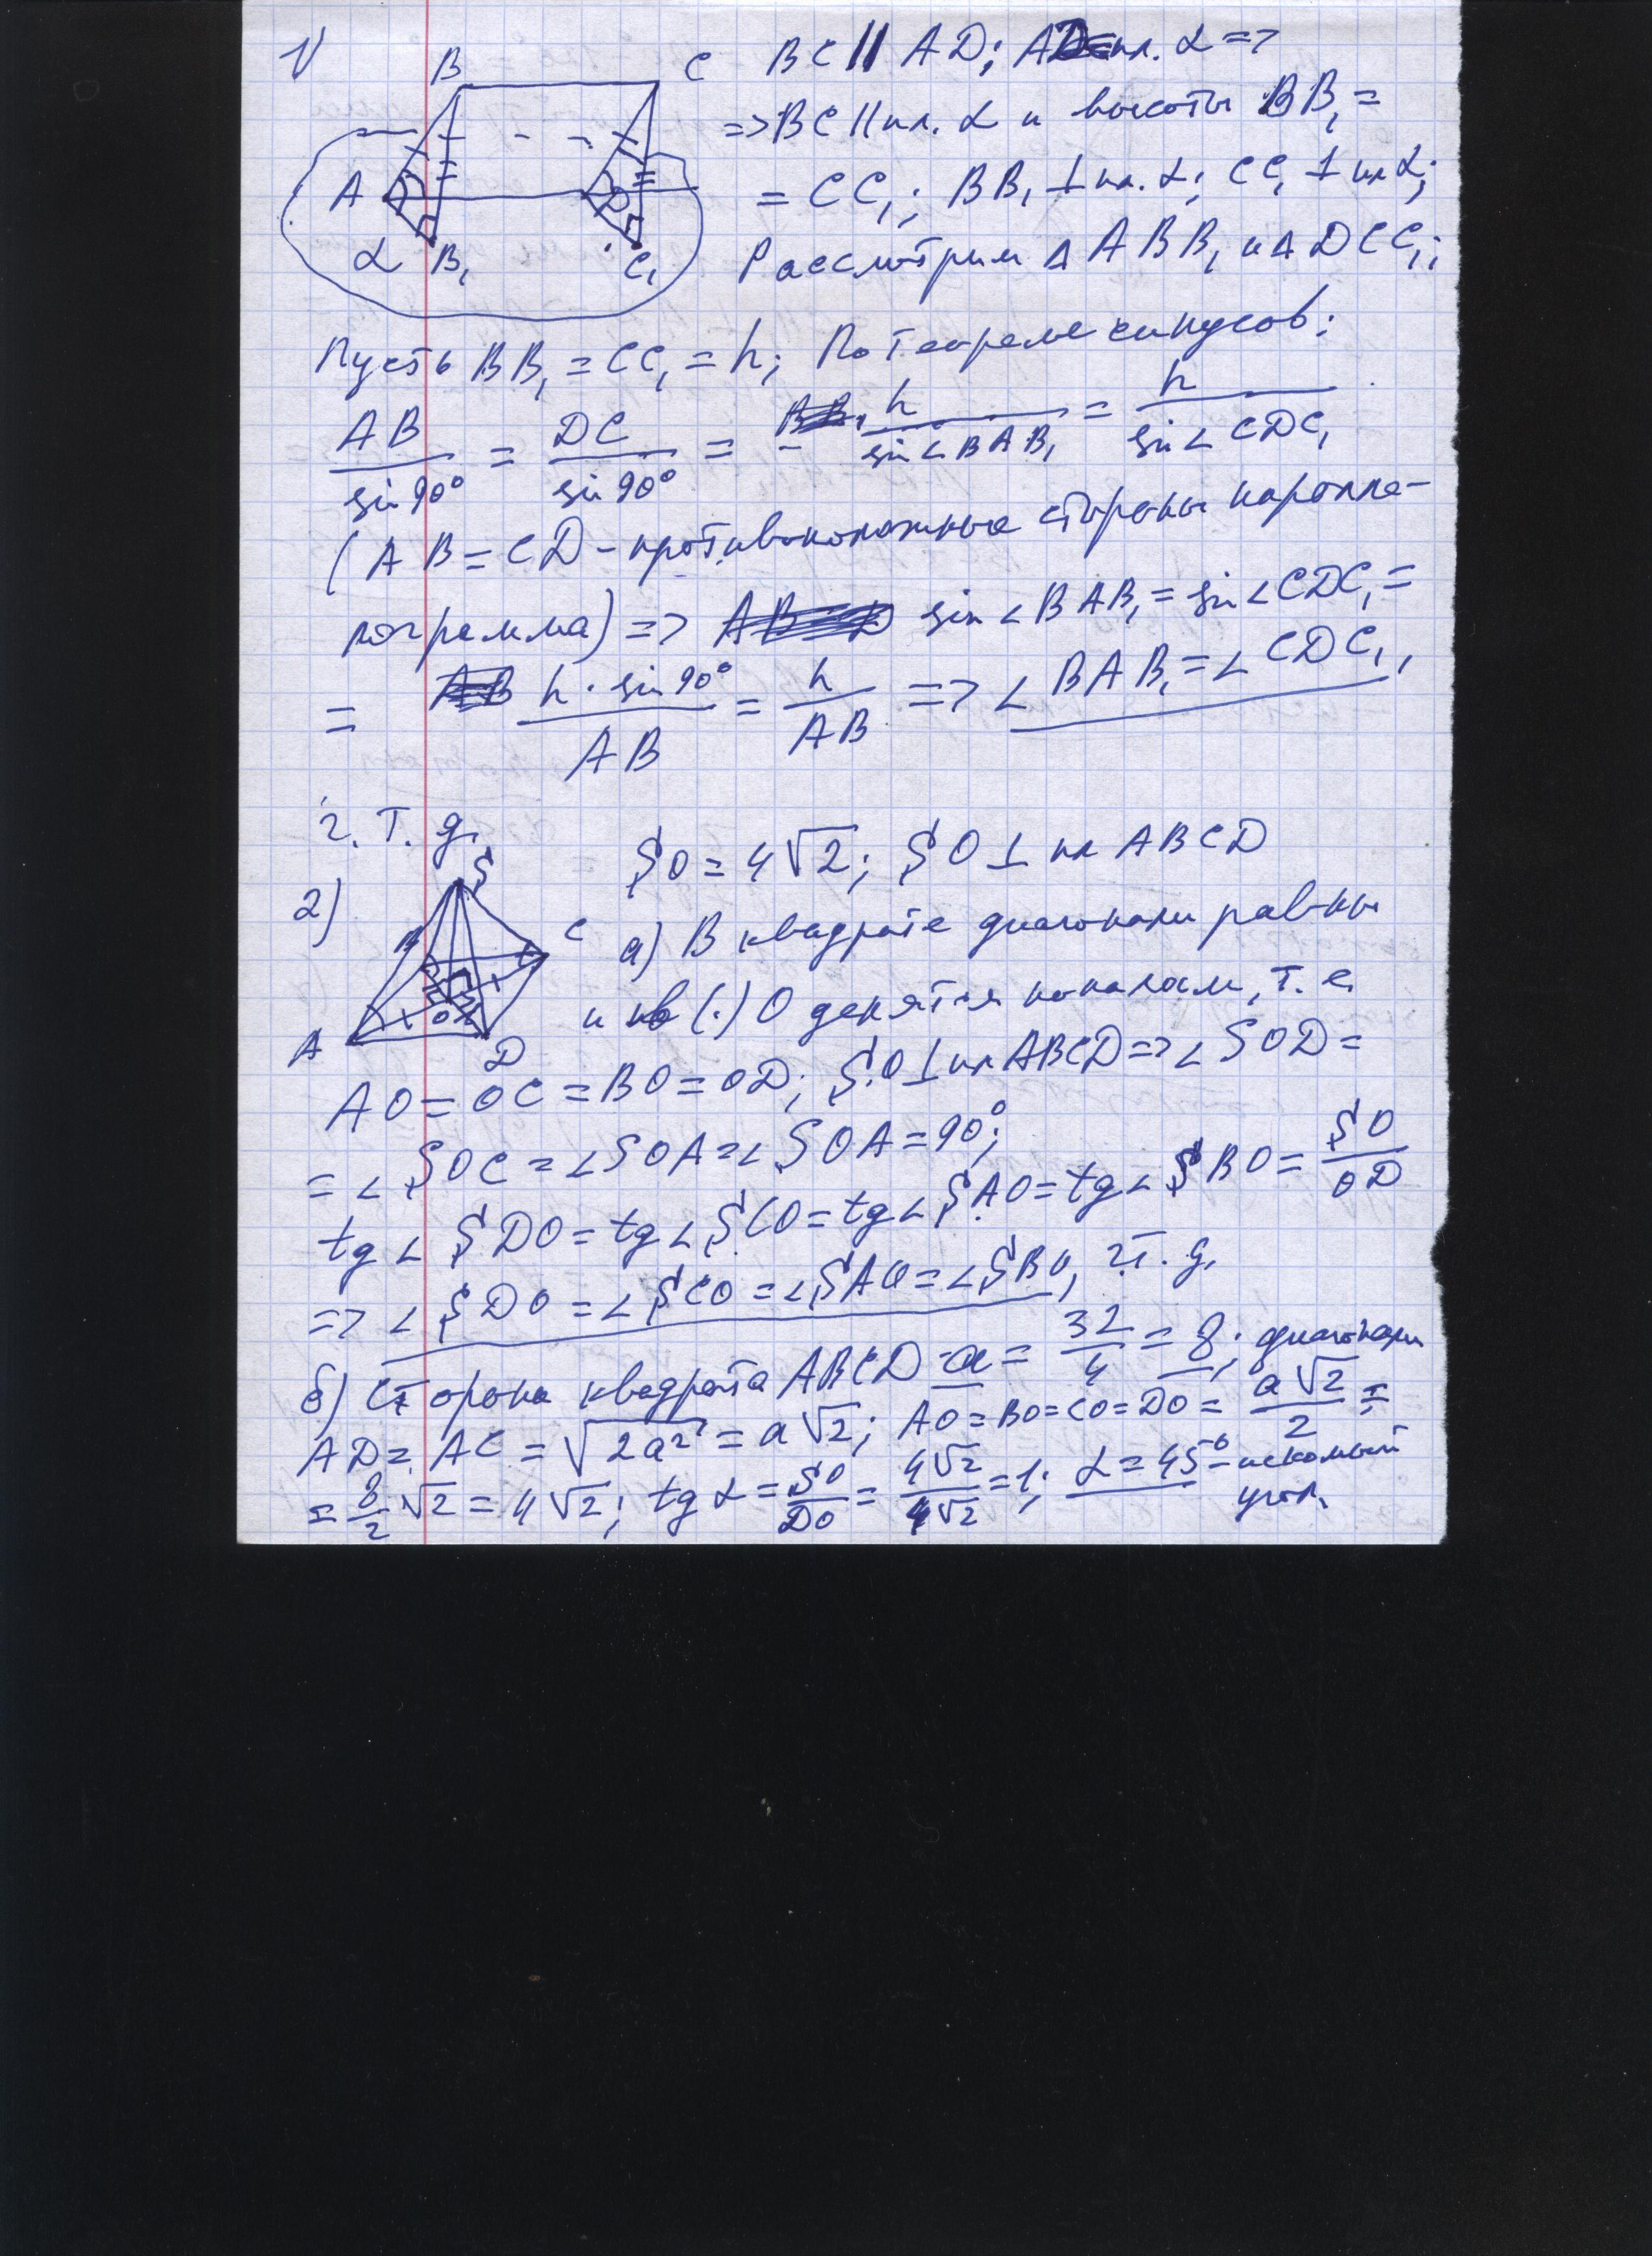 1)
B C
A D
α B₁ C₁
BC || AD; AD ∈ пл. α =>
=> BC || пл. α и высоты BB₁ =
= CC₁; BB₁ ⊥ пл. α; CC₁ ⊥ пл α;
Рассмотрим Δ ABB₁ и Δ DCC₁;
Пусть BB₁ = CC₁ = h; По теореме синусов:
AB/sin 90° = DC/sin 90° = h/sin∠BAB₁ = h/sin∠CDC₁
(AB = CD - противоположные стороны паралле-
лограмма) => sin∠BAB₁ = sin∠CDC₁ =
= h · sin 90°/AB = h/AB => ∠BAB₁ = ∠CDC₁,
ч. т. д.
2)
S
B C
O
A D
SO = 4√2; SO ⊥ пл ABCD
а) В квадрате диагонали равны
и в (·) O делятся пополам, т. е.
AO = OC = BO = OD; SO ⊥ пл ABCD => ∠SOD =
= ∠SOC = ∠SOA = ∠SOA = 90°;
tg∠SDO = tg∠SCO = tg∠SAO = tg∠SBO = SO/OD
=> ∠SDO = ∠SCO = ∠SAO = ∠SBO, ч.т.д.
б) Сторона квадрата ABCD - a = 32/4 = 8; диагонали
AD = AC = √2a² = a√2; AO = BO = CO = DO = a√2/2 =
= 8/2 √2 = 4√2; tg α = SO/DO = 4√2/4√2 = 1; α = 45° - искомый
угол.